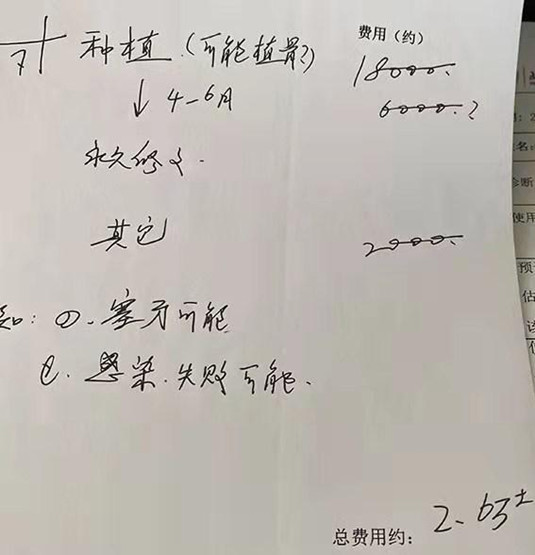 费用(约)
7 种植.(可能植骨?) 18000.
↓ 4-6月 6000.?
永久修复.
其它 2000.
知: ①.塞牙可能
②.感染.失败可能.
总费用约: 2.6万±
诊断
使用
预
估
该